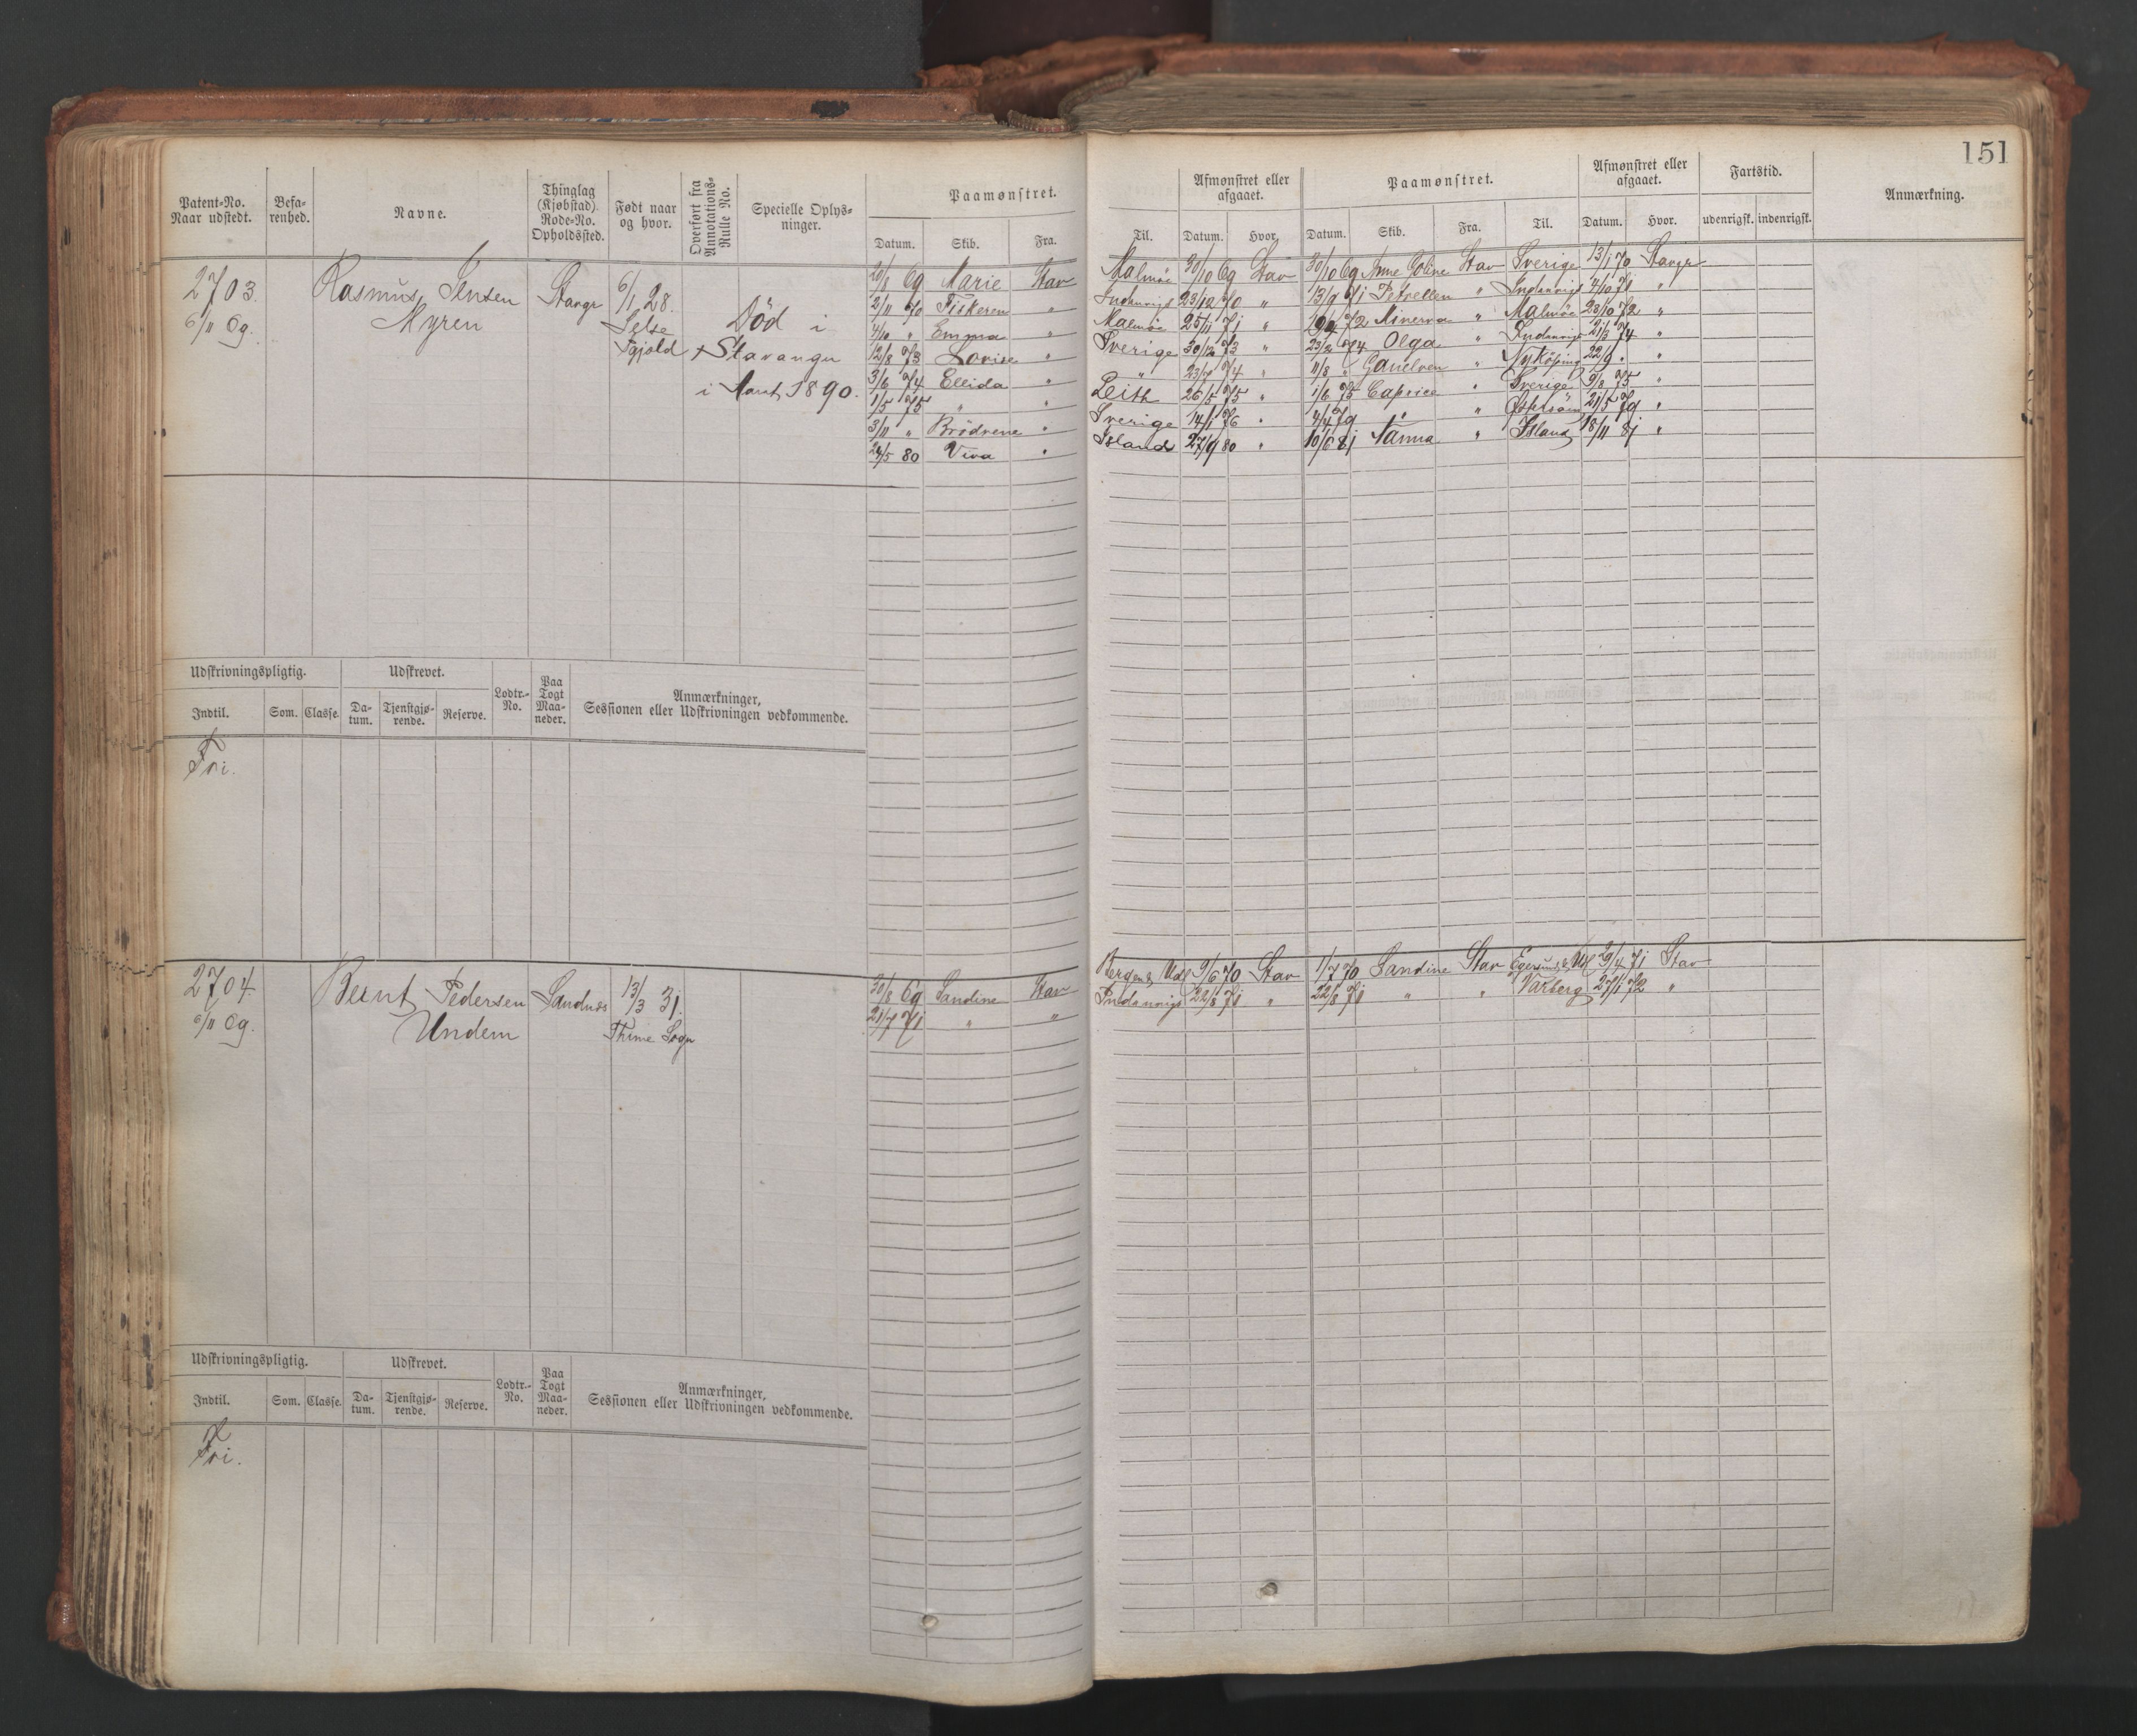 151
Patent-No. Naar udstedt.
Befarenhed.
Navne.
Thinglag (Kjøbstad). Rode-No. Opholdssted.
Født naar og hvor.
Overført fra Annotations-Rulle No.
Specielle Oplysninger.
Paamønstret.
Datum. Skib. Fra.
Til.
Afmønstret eller afgaaet.
Datum. Hvor.
Paamønstret.
Datum. Skib. Fra. Til.
Afmønstret eller afgaaet.
Datum. Hvor.
Fartstid.
udenrigsk. indenrigsk.
Anmærkning.
2703.
6/11 69.
Rasmus Jensen
Myren
Stavgr
6/1 28.
Død i
+ Stavanger
i 1890.
20/8 69 Marie Stav Malmöe 30/10 69 Stav 30/10 69 Anne Goline Stav Sverige 13/1 70 Stavgr
2/11 70 Fiskeren " Indenrigs 23/12 70 " 13/9 71 Petrellen " Indenrigs 4/10 71 "
4/10 " Emma " Malmöe 25/11 71 " 72 Minerva " Malmöe 23/10 72 "
12/8 73 Lovise " Sverige 30/12 73 " 23/2 74 Olga " Indenrigs 74 "
3/6 74 Ellida " " 74 " 11/8 " " Nyköping 22/9 "
1/5 75 " " Leith 26/5 75 " 1/6 75 Caprice " Sverige 9/8 75 "
3/11 " Brödrene " Sverige 14/1 76 " 4/4 79 " 21/5 79 "
24/5 80 Viva " Island 27/9 80 " 10/6 81 Nanna " Island 18/11 81 "
Udskrivningspligtig. Udskrevet. Lodtr.-No. Paa Togt Maaneder. Anmærkninger, Sessionen eller Udskrivningen vedkommende.
Indtil. Som. Classe. Datum. Tjenstgjørende. Reserve.
Fri.
2704.
6/11 69.
Bernt Pedersen
Undem
Sandnes
13/3 31.
Thime Sogn
30/8 69 Sandine Stav Bergen & Udl 9/6 70 Stav 1/7 70 Sandine Stav Egersund & Udl 29/4 71 Stav
21/7 71 " " Indenrigs 22/8 71 " 22/8 71 " " Varberg 27/1 72 "
Udskrivningspligtig. Udskrevet. Lodtr.-No. Paa Togt Maaneder. Anmærkninger, Sessionen eller Udskrivningen vedkommende.
Indtil. Som. Classe. Datum. Tjenstgjørende. Reserve.
Fri.